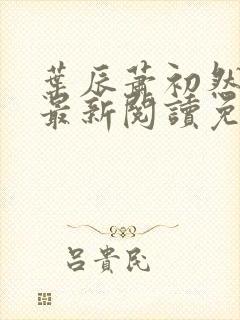 葉辰蕭初然
最新閱讀免
呂貴民